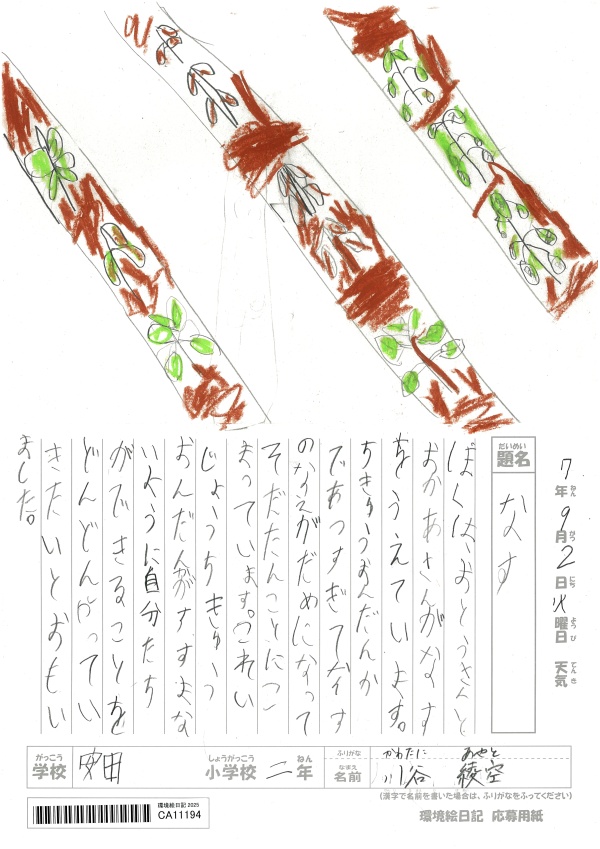 7年ねん9月がつ2日にち火曜日ようび 天気てんき
だいめい
題名
なす
ぼくは、おとうさんと
おかあさんがなす
をうえています。
ちきゅうおんだんか
であつすぎてなす
のなえがだめになって
そだたんことにこ
まっています。これい
じょうちきゅう
おんだんがすすまな
いように自分たち
ができることを
どんどんやってい
きたいとおもい
ました。
がっこう しょうがっこう ねん ふりがな かわたに あやと
学校 安田 小学校 二年 なまえ 名前 川谷 綾空
(漢字で名前を書いた場合は、ふりがなをふってください)
環境絵日記 2025
CA11194
環境絵日記 応募用紙